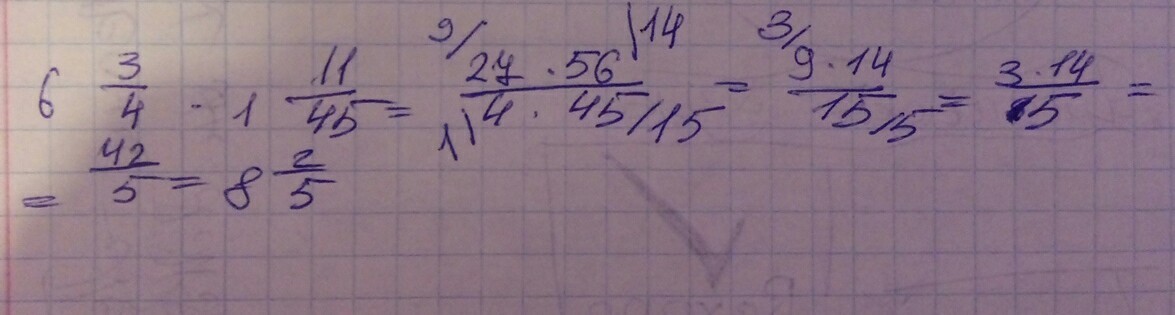 6 3/4 · 1 11/45 = 9/ 27 · 56 \14 / 1\ 4 · 45 /15 = 3/ 9 · 14 / 15 /5 = 3 · 14 / 5 =
= 42/5 = 8 2/5